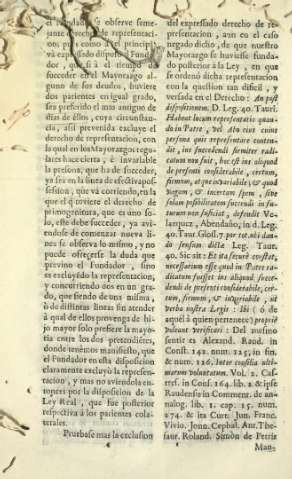 el Fundador, se observe seme-
jante derecho de representaci-
on; pues como à lo principal
và expressado dispuso el Funda-
dor, si à el tiempo de
succeder en el Mayorazgo al-
guno de sus deudos, huviere
dos parientes en igual grado,
sea preferido el mas antiguo de
dias de ellos, cuya circunstan-
cia, assi prevenida excluye el
derecho de representacion, con
la qual en los Mayorazgos regu-
lares hace cierta, è invariable
la persona, que ha de succeder,
ya sea en la linea de efectiva pos-
session, que và corriendo, en la
que el que tiene el derecho de
primogenitura, que es uno so-
lo, este debe succeder, ya avi-
endose de comenzar nueva li-
nea se observa lo mismo, y no
puede ofrecerse la duda que
previno el Fundador, sino
es excluyendo la representacion,
y concurriendo dos en un gra-
do, que siendo de una misma,
ò de distintas lineas sin atender
à qual de ellos provenga de hi-
jo mayor solo prefiere la mayo-
ria entre los dos pretendientes,
donde tenemos manifiesto, que
el Fundador en esta disposicion
claramente excluyò la represen-
tacion, y mas no aviendola en-
tonces por la disposicion de la
Ley Real, que fue posterior
respectiva à los parientes cola-
terales.
Pruebase mas la exclusion
del expressado derecho de re-
presentacion, aun en el caso
negado dicho, de que nuestro
Mayorazgo se huviesse funda-
do posterior à la Ley, en que
se ordenò dicha representacion
con la question tan dificil, y
versada en el Derecho: An post
dispositionem. D. Leg. 40. Tauri.
Habeat locum representatio quan-
do in Patre, vel Avo cuius
persona quis representare conten-
dit, ius succedendi firmiter radi-
catum non fuit, hoc est ius aliquod
de presenti considerabile, certum,
firmum, at que invariabile, sed quod
vagum, & incertum spem, sive
solam possibilitatem succedendi in fu-
turum non sufficiat, defendit Ve-
lazquez, Abendaño, in d. Leg.
40. Taur. Gloss. 7. per tot. ubi dan-
do sensum dictæ Leg. Taur.
40. Sic ait: Et ita securè constat,
necessarium esse quod in Patre ra-
dicatum fuisset ius aliquod succe-
dendi de presenti considerabile, cer-
tum, firmum, & invariabile, ut
verba nostra Legis: Ibi (ò de
aquel à quien pertenece) propriè
valeant verificari: Del mismo
sentir es Alexand. Raud. in
Const. 142. num. 225. in fin.
& num. 226. Inter consilia ulti-
marum voluntatum. Vol. 2. Cas-
tres. in Cons. 164. lib. 2. & ipse
Raudensis in Comment. de ana-
nalog. lib. 1. cap. 15. num.
274. & ita Curt. Jun. Franc.
Vivio. Jonn. Cephal. Ant. The-
saur. Roland. Simòn de Petris
Man-